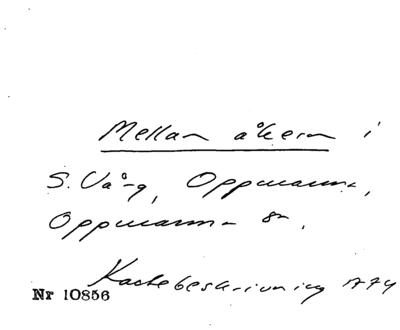 Mellan åkern i
S. Vång, Oppmanna,
Oppmanna sn.
Kartebeskrivning 1774
Nr 10856